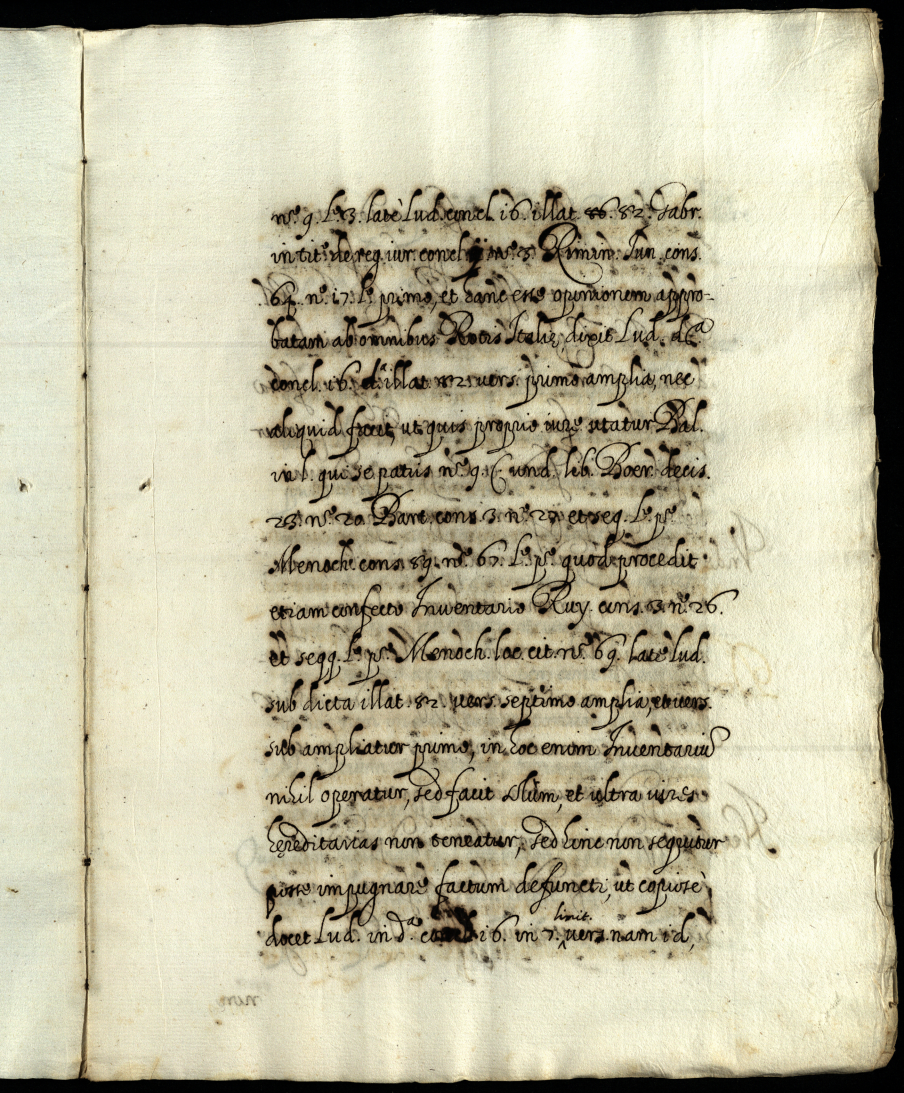 nº. 9. L. 3. latè Lud. concl. 16. illat. 82. Fabr.
in tit. de reg. iur. concl. Rimin. Iun. cons.
nº. 17. Lº. primo, et hanc esse opinionem appro-
batam ab omnibus Rotis Italię dixit Lud. dª.
concl. 16. illat. 82. vers. primo amplia, nec
aliquid facit, ut quis proprio iure utatur Bal.
in l. qui se patris nº. 9. C. und. lib. Boer. decis.
23. nº. 20. cons. 3. nº. 27. et seq. Lº. pº.
Menoch. cons. 89. nº. 67. Lº. pº. quod procedit
etiam confecto Inventario Ruy. cons. 3. nº. 26.
et seqq. Lº. pº. Menoch. loc. cit. nº. 69. latè Lud.
sub dicta illat. 82. vers. septimo amplia, et vers.
sub ampliatur primo, in hoc enim Inventariũ
nihil operatur, sed facit solùm, et ultra vires
hęreditarias non teneatur, sed hinc non sequitur
posse impugnare factum defuncti, ut copiosè
docet Lud. in dª. concl. 16. in 7. limit. vers. nam id,